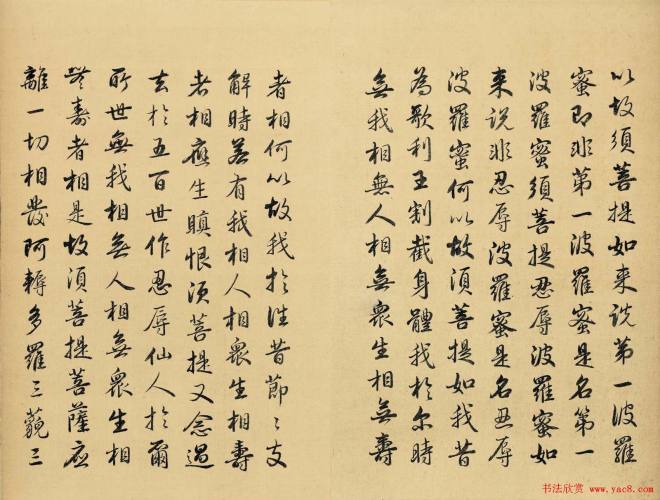 以故須菩提如来说第一波羅
蜜即非第一波羅蜜是名第一
波羅蜜須菩提忍辱波羅蜜如
来说非忍辱波羅蜜是名忍辱
波羅蜜何以故須菩提如我昔
為歌利王割截身體我於尔時
無我相無人相無衆生相無壽
者相何以故我於往昔節〻支
解時若有我相人相衆生相壽
者相應生瞋恨須菩提又念過
去於五百世作忍辱仙人於爾
所世無我相無人相無衆生相
無壽者相是故須菩提菩薩應
離一切相發阿耨多羅三藐三
书法欣赏 www.yac8.com